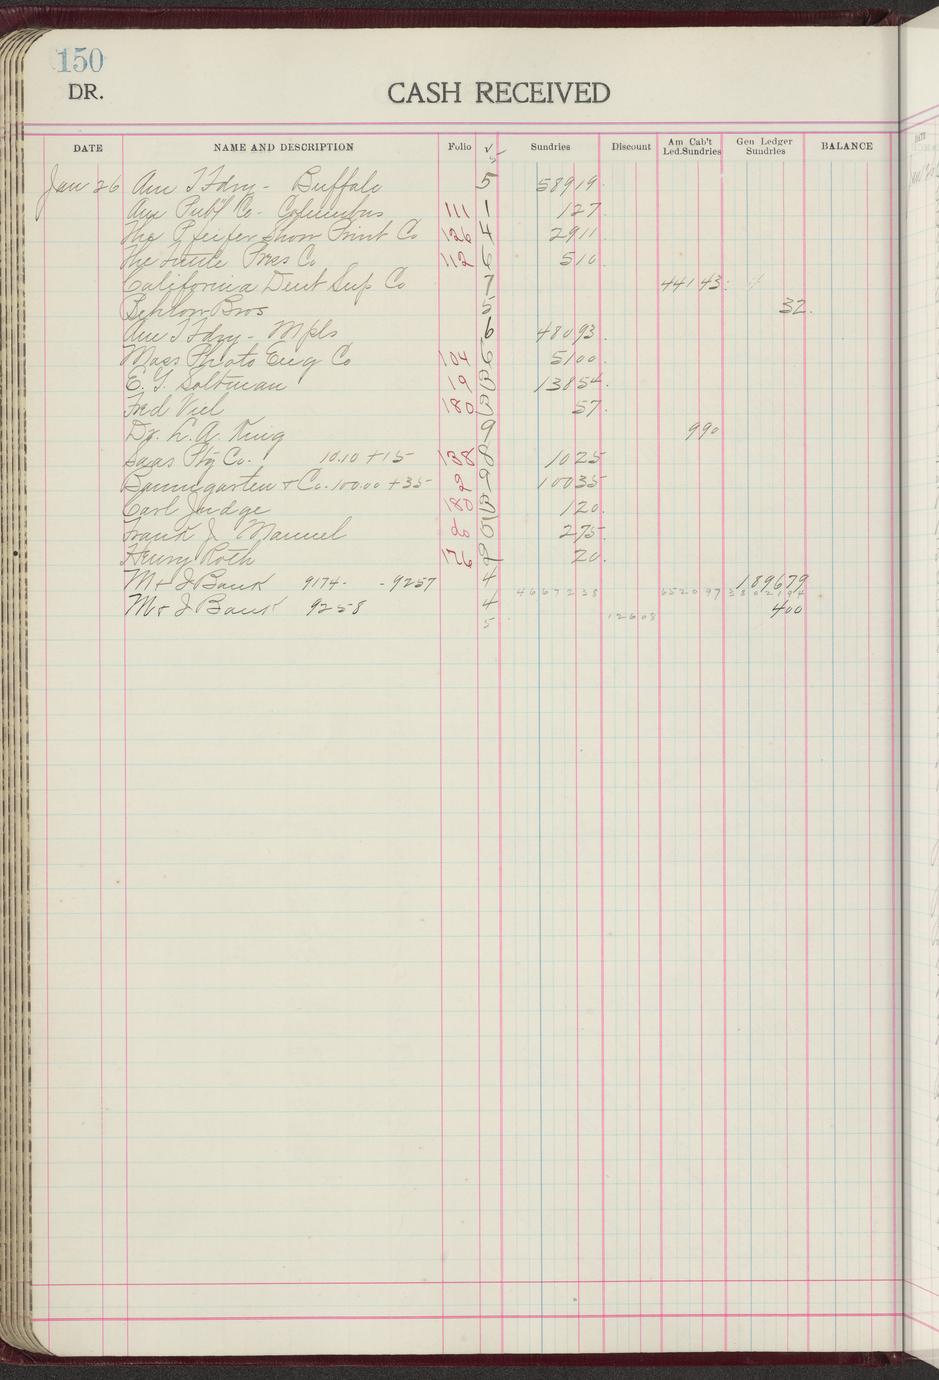 150
DR.
CASH RECEIVED
DATE NAME AND DESCRIPTION Folio √ Sundries Discount Am Cab't Led.Sundries Gen Ledger Sundries BALANCE
Jan 26 Am T Fdry - Buffalo 5 58919
Am Publ Co - Columbus 111 1 127
The Pfeifer Show Print Co 126 4 2911
The Tuttle Press Co 112 6 510
California Dent Sup Co 7 44143
Behlow Bros 5 32
Am T Fdry - Mpls 6 48093
Mass Photo Eng Co 104 6 5100
E. G. Soltman 19 13854
Fred Viel 180 57
Dr. L. A. King 9 990
Saas Ptg Co. 10.10 + 15 138 8 1025
Baumgarten & Co. 100.00 + 35 2 9 10035
Carl Judge 180 120
Frank J Manuel do 275
Henry Roth 176 20
M & I Bank 9174 - - 9257 4 189679
4667238 652097 3802194
M & I Bank 9258 4 400
5 12608